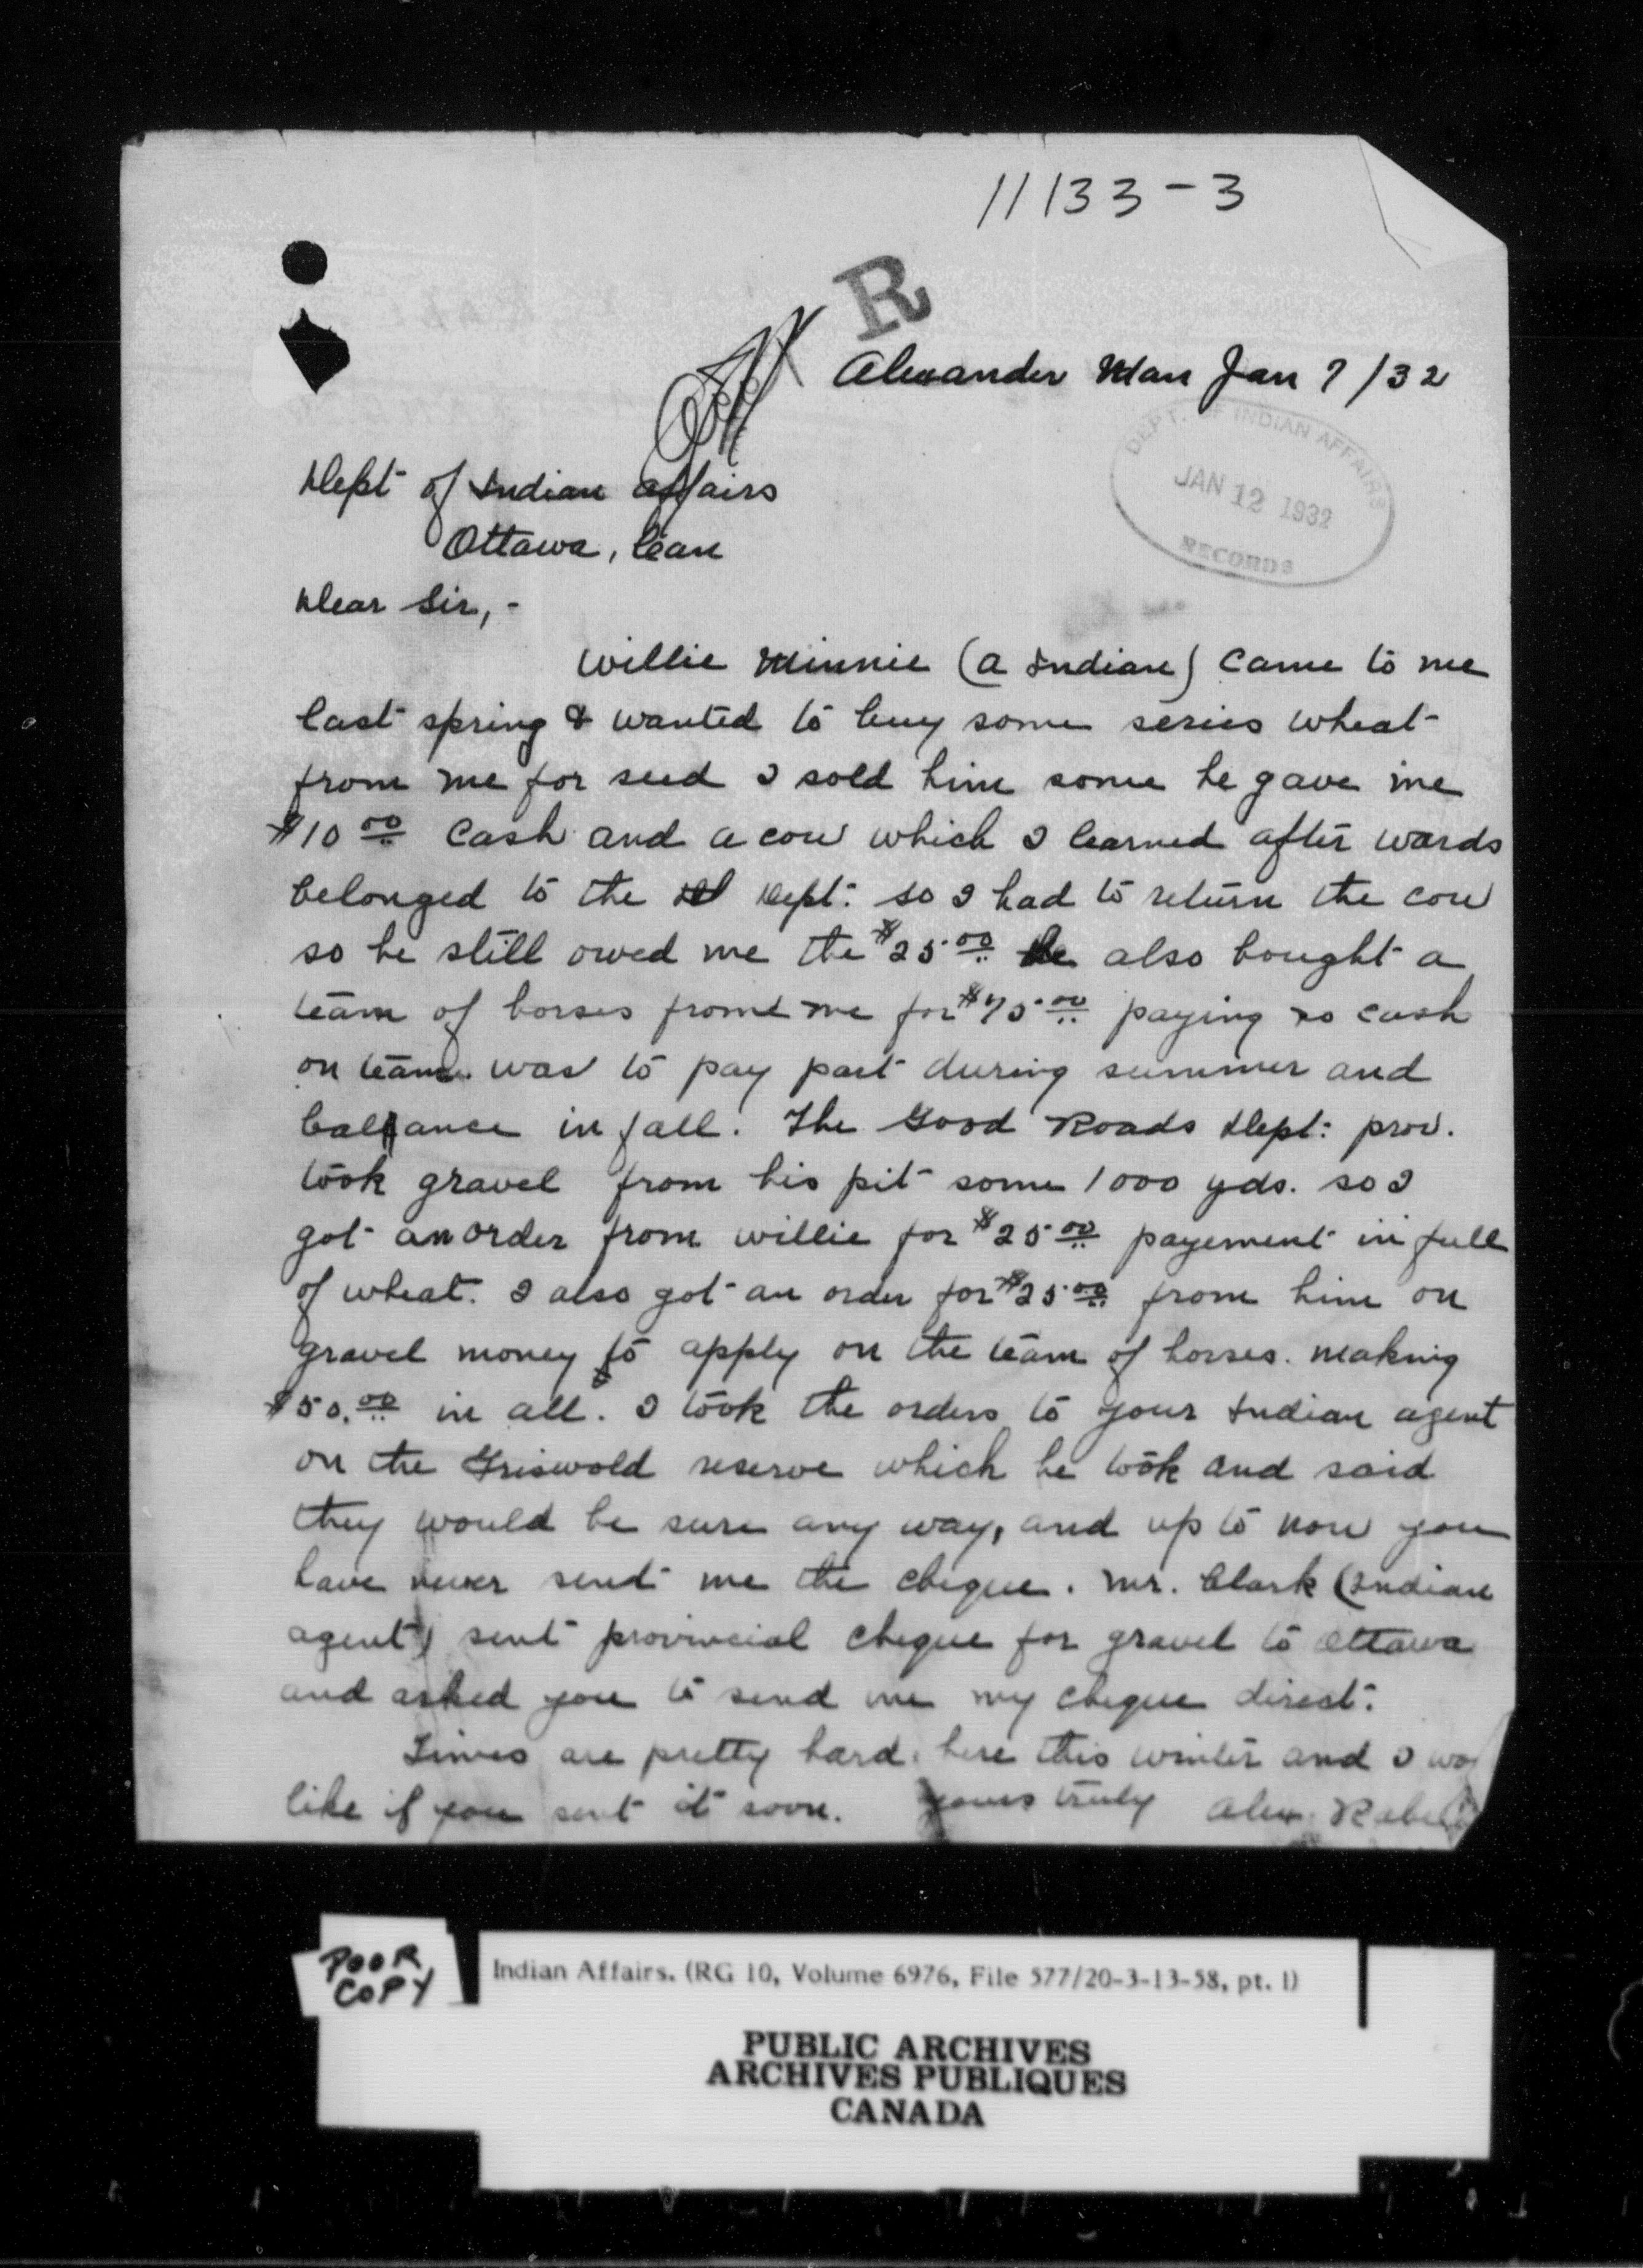 11133-3
R
Alexander Man Jan 7/32
DEPT. OF INDIAN AFFAIRS
JAN 12 1932
RECORDS
Dept of Indian Affairs
Ottawa, Can
Dear Sir,-
Willie Minnie (a Indian) came to me
last spring & wanted to buy some series wheat
from me for seed I sold him some he gave me
$10.00 cash and a cow which I learned after wards
belonged to the Dept: so I had to return the cow
so he still owed me the $25.00 He also bought a
team of horses from me for $75.00 paying no cash
on team was to pay part during summer and
ballance in fall. The Good Roads Dept: prov.
took gravel from his pit some 1000 yds. so I
got an order from Willie for $25.00 payement in full
of wheat. I also got an order for $25.00 from him on
gravel money to apply on the team of horses. making
$50.00 in all. I took the orders to your Indian agent
on the Griswold reserve which he took and said
they would be sure any way, and up to now you
have never send me the cheque. Mr. Clark (Indian
agent) sent provincial cheque for gravel to Ottawa
and asked you to send me my cheque direct.
Times are pretty hard here this winter and I
like if you sent it soon. Yours truly Alex.
POOR
COPY
Indian Affairs. (RG 10, Volume 6976, File 577/20-3-13-58, pt. 1)
PUBLIC ARCHIVES
ARCHIVES PUBLIQUES
CANADA